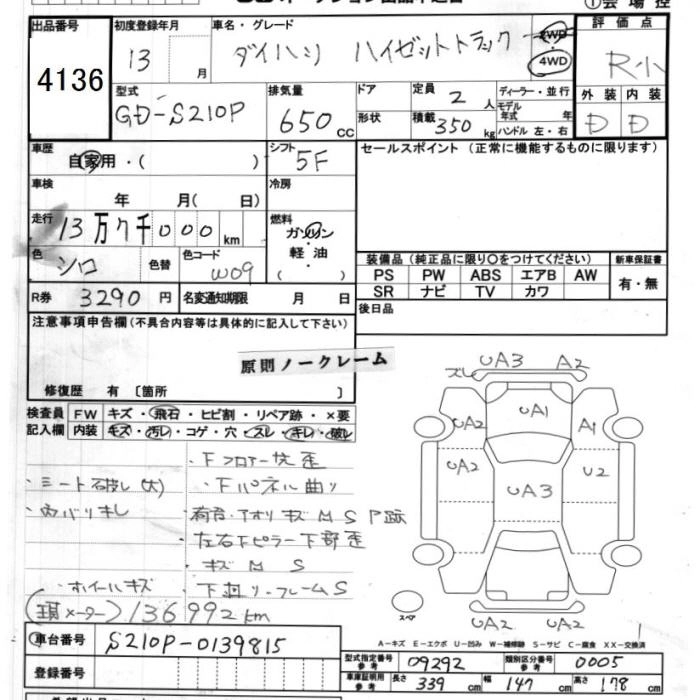 ①会場控
出品番号 初度登録年月 車名・グレード 評価点
4136 13 月 ダイハツ ハイゼットトラック 2WD 4WD R小
型式 排気量 ドア 定員 ディーラー・並行 外装 内装
GD-S210P 650 cc 2 人 モデル年式 年 D D
形状 積載 350 kg ハンドル 左・右
車歴 シフト セールスポイント (正常に機能するものに限ります)
自家用・( ) 5F
車検 冷房
年 月( 日)
走行 燃料
13万7千000km ガソリン
色 色替 色コード 軽油
シロ W09 ( )
装備品(純正品に限り○をつけてください) 新車保証書
PS PW ABS エアB AW 有・無
SR ナビ TV カワ
R券 3290円 名変通知期限 月 日 後日品
注意事項申告欄(不具合内容等は具体的に記入して下さい)
原則ノークレーム
修復歴 有〔箇所 〕
検査員 FW キズ・飛石・ヒビ割・リペア跡・×要
記入欄 内装 キズ・汚レ・コゲ・穴・スレ・キレ・破レ
ズレ UA3 A2
UA2 UA1 A1
UA2 UA3 U2
UA2 UA2
スペア
・下フロアー歪
・シート破レ(大) ・下パネル曲り
・内バリキレ ・荷台・アオリキズMSP跡
・左右下ピラー下部歪
・キズMS
・ホイールキズ 下廻り・フレームS
(現メーター)136992km
A-キズ E-エクボ U-凹み W-補修跡 S-サビ C-腐食 XX-交換済
車台番号 S210P-0139815
型式指定番号 参考 09292 類別区分番号 参考 0005
登録番号
車庫証明用 参考 長さ 339cm 幅 147cm 高さ 178cm